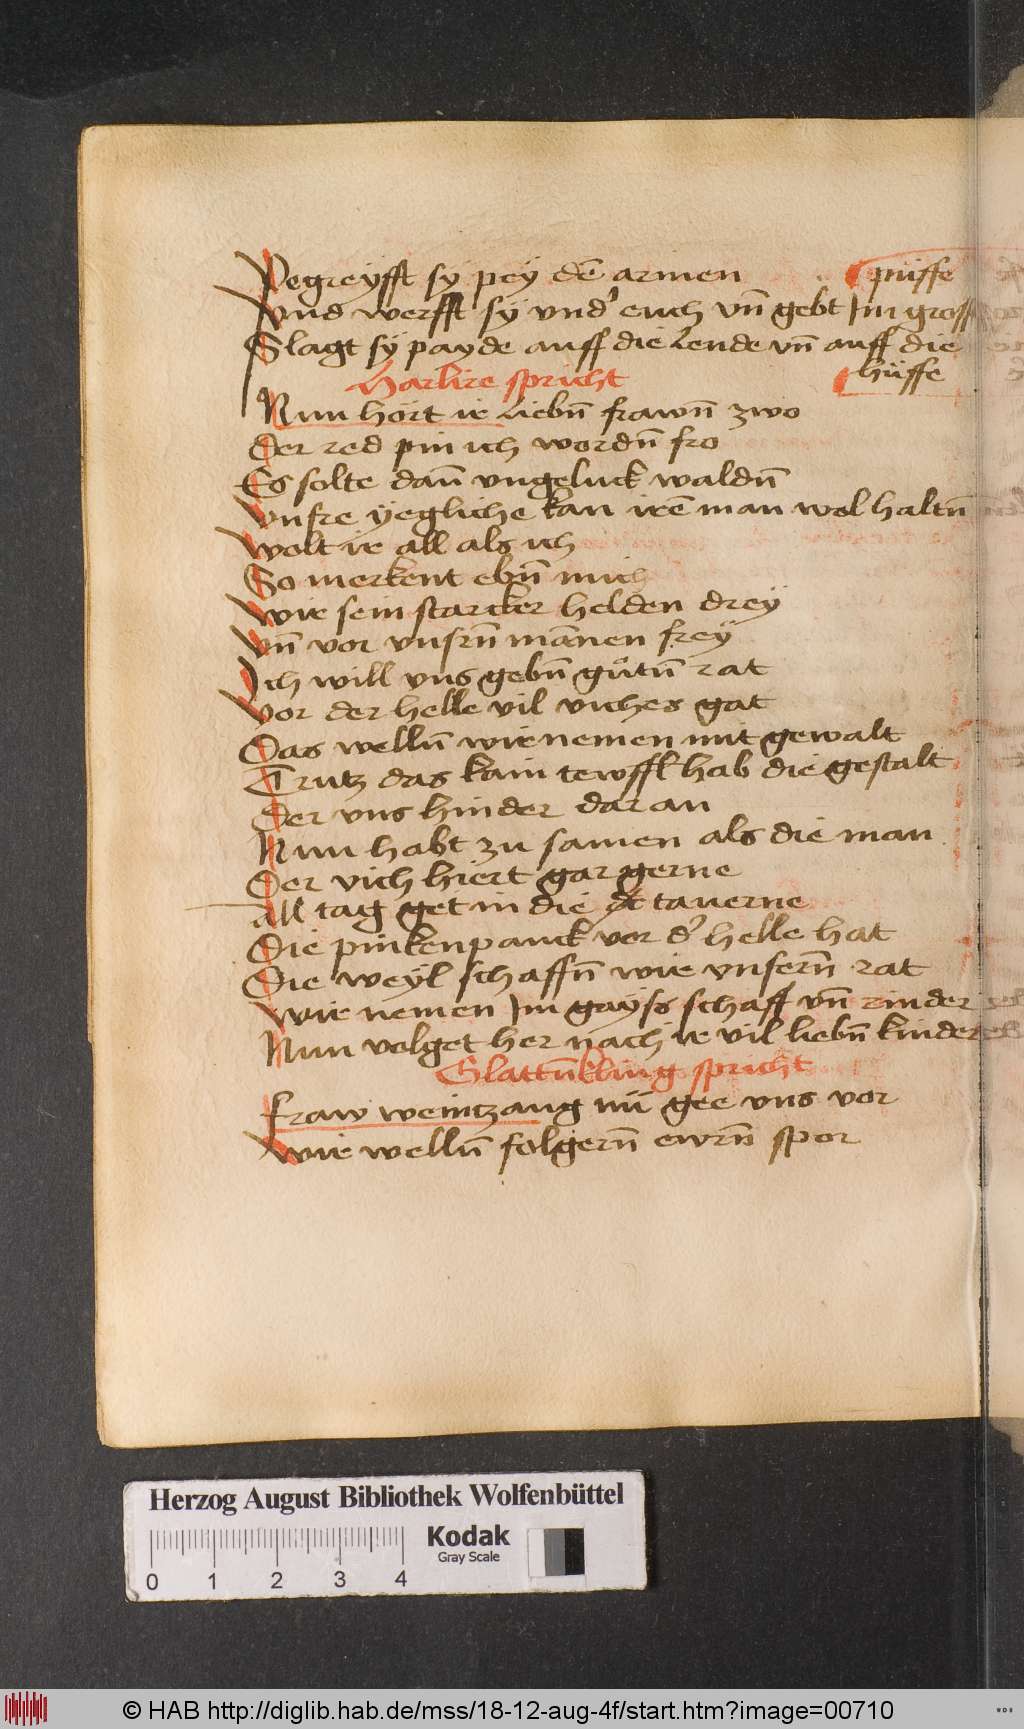 Pegreÿfft sÿ peÿ dē armen
püffe
Vnd werfft sÿ vnd' euch vn̄ gebt Im gross
Slagt sÿ payde auff die Lende vn̄ auff die
hüffe
Harlire spricht
Nun hört ir liebn̄ frawn̄ zwo
Der red pin ich wordn̄ fro
Es solte dan̄ vngeluck waldn̄
Vnsre yegliche kan irē man wol haltn̄
Wolt ir all als ich
So merkent ebn̄ mich
Wir sein starcker helden dreÿ
Vn̄ vor vnsrn̄ mānen freÿ
Ich will vns gebn̄ gůtn̄ rat
Vor der helle vil viches gat
Das welln̄ wir nemen mit gewalt
Trutz das kain tewffl hab die gestalt
Der vns hinder daran
Nun habt zu samen als die man
Der vich hiert gar gerne
All tag get in die tauerne
Die pinkenpanck vor d' helle hat
Die weÿl schaffn̄ wir vnsern̄ rat
Wir nemen Im gayss schaff vn̄ rinder
Nun volget her nach ir vil liebn̄ kinder
Slattn̄kling spricht
Fraw weintzang nü gee vns vor
Wir welln̄ folgern̄ ewrn̄ spor
Herzog August Bibliothek Wolfenbüttel
Kodak
Gray Scale
0 1 2 3 4
© HAB http://diglib.hab.de/mss/18-12-aug-4f/start.htm?image=00710